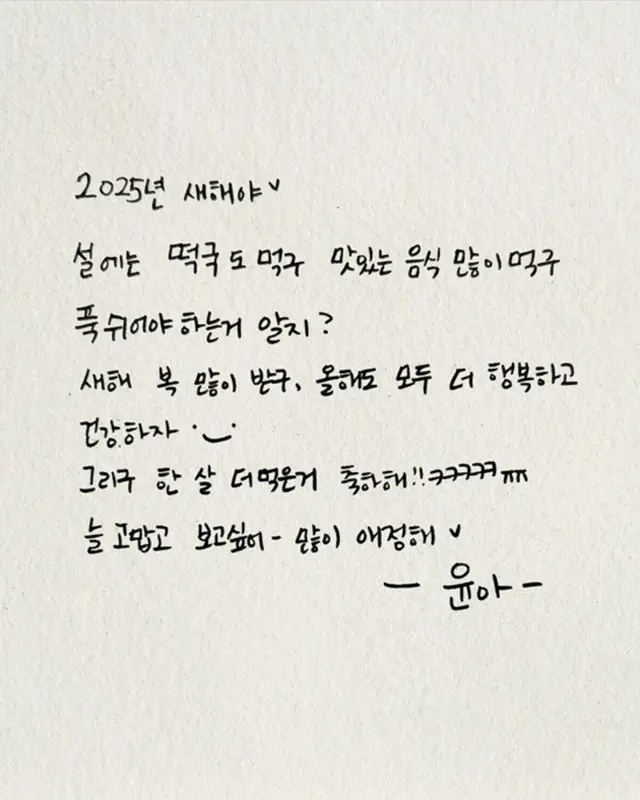 2025년 새해야 ♥
설에는 떡국도 먹구 맛있는 음식 많이먹구
푹 쉬어야하는거 알지?
새해 복 많이 받구, 올해도 모두 더 행복하고
건강하자 ·‿·
그리구 한 살 더먹은거 축하해!!ㅋㅋㅋㅋㅋㅠㅠ
늘 고맙고 보고싶어~ 많이 애정해 ♥
- 윤아 -